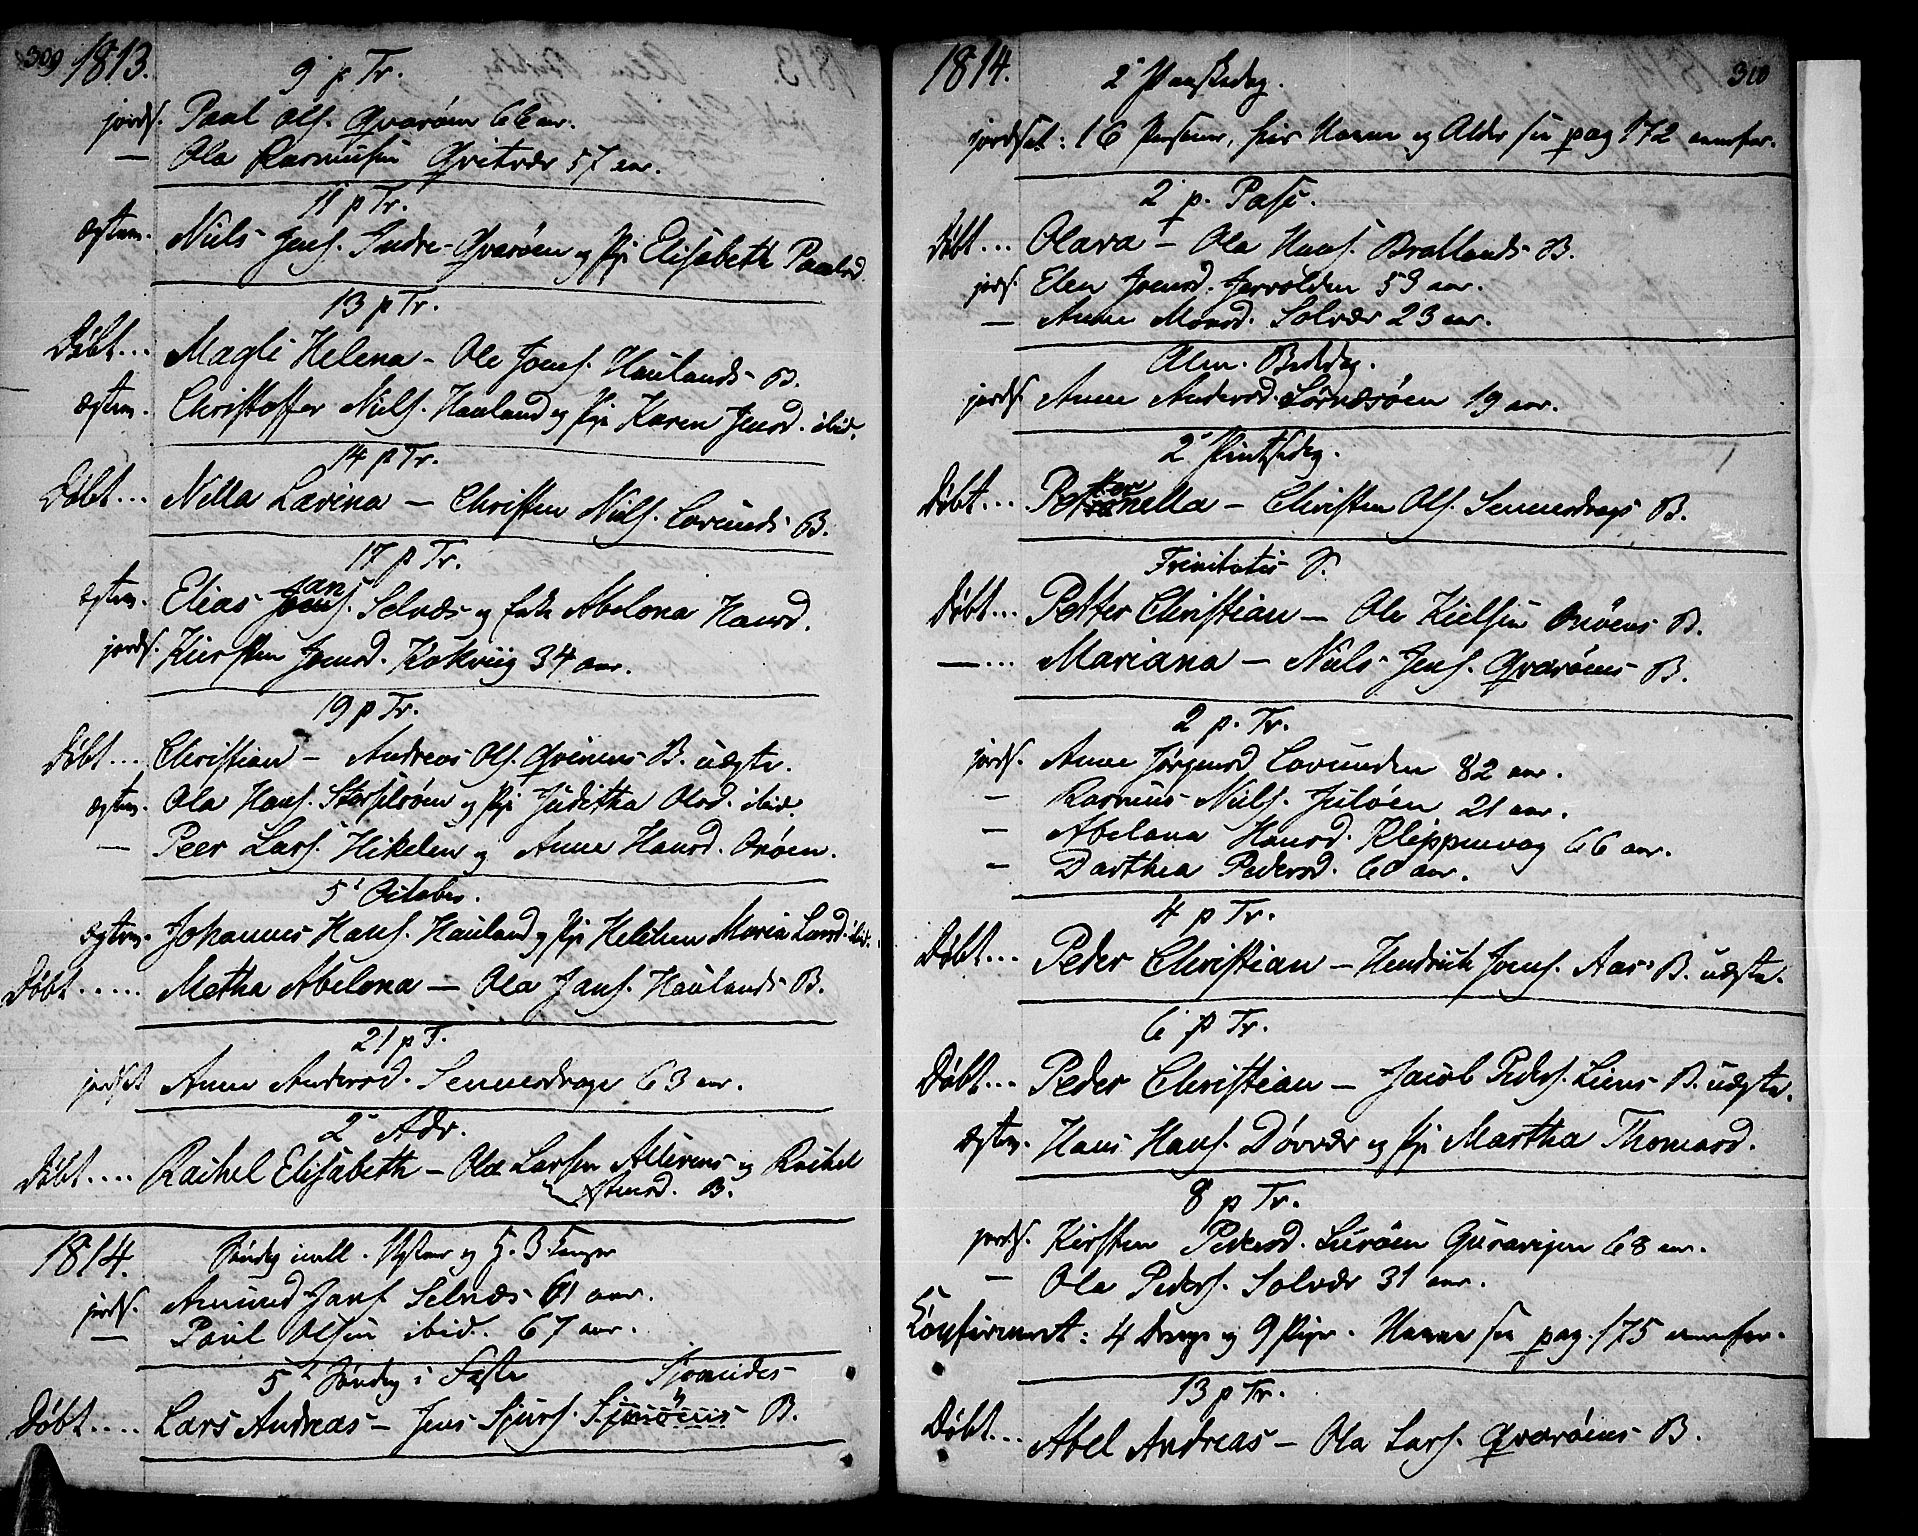 309 1813.
9 p Tr.
jords. Paul Ols. Qvarøen 66 aar.
— Ola Rasmusen Qvitvær 57 aar.
11 p Tr.
ægtev. Niels Jens. Indre-Qvarøen og Pige Elisabeth Paulsd.
13 p Tr.
Døbt... Magli Helena - Ole Joens. Haulands B.
ægtev. Christoffer Niels. Hauland og Pige Karen Jensd. ibid.
14 p Tr.
Døbt... Nilla Lavina — Christen Niels. Lovunds B.
17 p Tr.
ægtev. Elias Jans. Selnæs og Enke Abelona Hansd.
jords. Kirsten Joensd. Kokviig 34 aar.
19 p Tr.
Døbt... Christian — Andreas Ols. Qvinens B. uægte.
ægtev. Ola Hans. Storselsøen og Pige Juditha Olsd. ibid.
— Peer Lars. Hikelen og Anne Hansd. Onøen.
5t October.
ægtev. Johannes Hans. Hauland og Pige Helchen Maria Larsd. ibid.
Døbt..... Metha Abelona — Ola Jans. Haulands B.
21 p T.
jordset Anne Andersd. Sennesdrage 63 aar.
2 Adv.
Døbt.... Rachel Elisabeth — Ola Larsen Altervens og Rachel
Amsd. B.
1814. Søndag imell. Nytaar og H. 3 Konger
jords. Amund Jans Selnæs 61 aar.
— Paul Olsen ibid. 67 aar.
5t Søndag i Faste Sjonides
Døbt.... Lars Andreas — Jens Sjurs. B.
1814. 310
2 Paaskedag.
jordset: 16 Personer, hvis Navne og Alder see pag 172 nenfor.
2 p. Pasc.
Døbt... Olava — Ola Hans. Bratlands B.
jords. Elen Joensd. Jervolden 59 aar.
— Anne Monsd. Solvær 23 aar.
Alm. Bededag.
jords. Anne Andersd. Sørnæsøen 19 aar.
2 Pintsedag.
Døbt... Petronella — Christen Ols. Sennesdrags B.
Trinitatis S.
Døbt... Petter Christian — Ole Kielsen Onøens B.
—... Mariana — Niels Jens. Qvarøens B.
2 p. Tr.
jords. Anne Jørgensd Lovunden 82 aar.
— Rasmus Niels. Juløen 21 aar.
— Abelona Hansd. Kleppenvag 66 aar.
— Darthea Pedersd. 60 aar.
4 p Tr.
Døbt... Peder Christian — Hendrich Joens. Aas B. uægte.
6 p Tr.
Døbt... Peder Christian — Jacob Peders. Liens B. uægte.
ægtev. Hans Hans. Dørvær og Pige Martha Thomasd.
8 p Tr.
jords. Kirsten Pedersd. Lurøen Guravigen 68 aar.
— Ola Peders. Solvær 31 aar.
Confirmeret: 4 Drenge og 9 Piger. Navne see pag. 175 nenfor.
13 p Tr.
Døbt... Abel Andreas — Ola Lars. Qvarøens B.